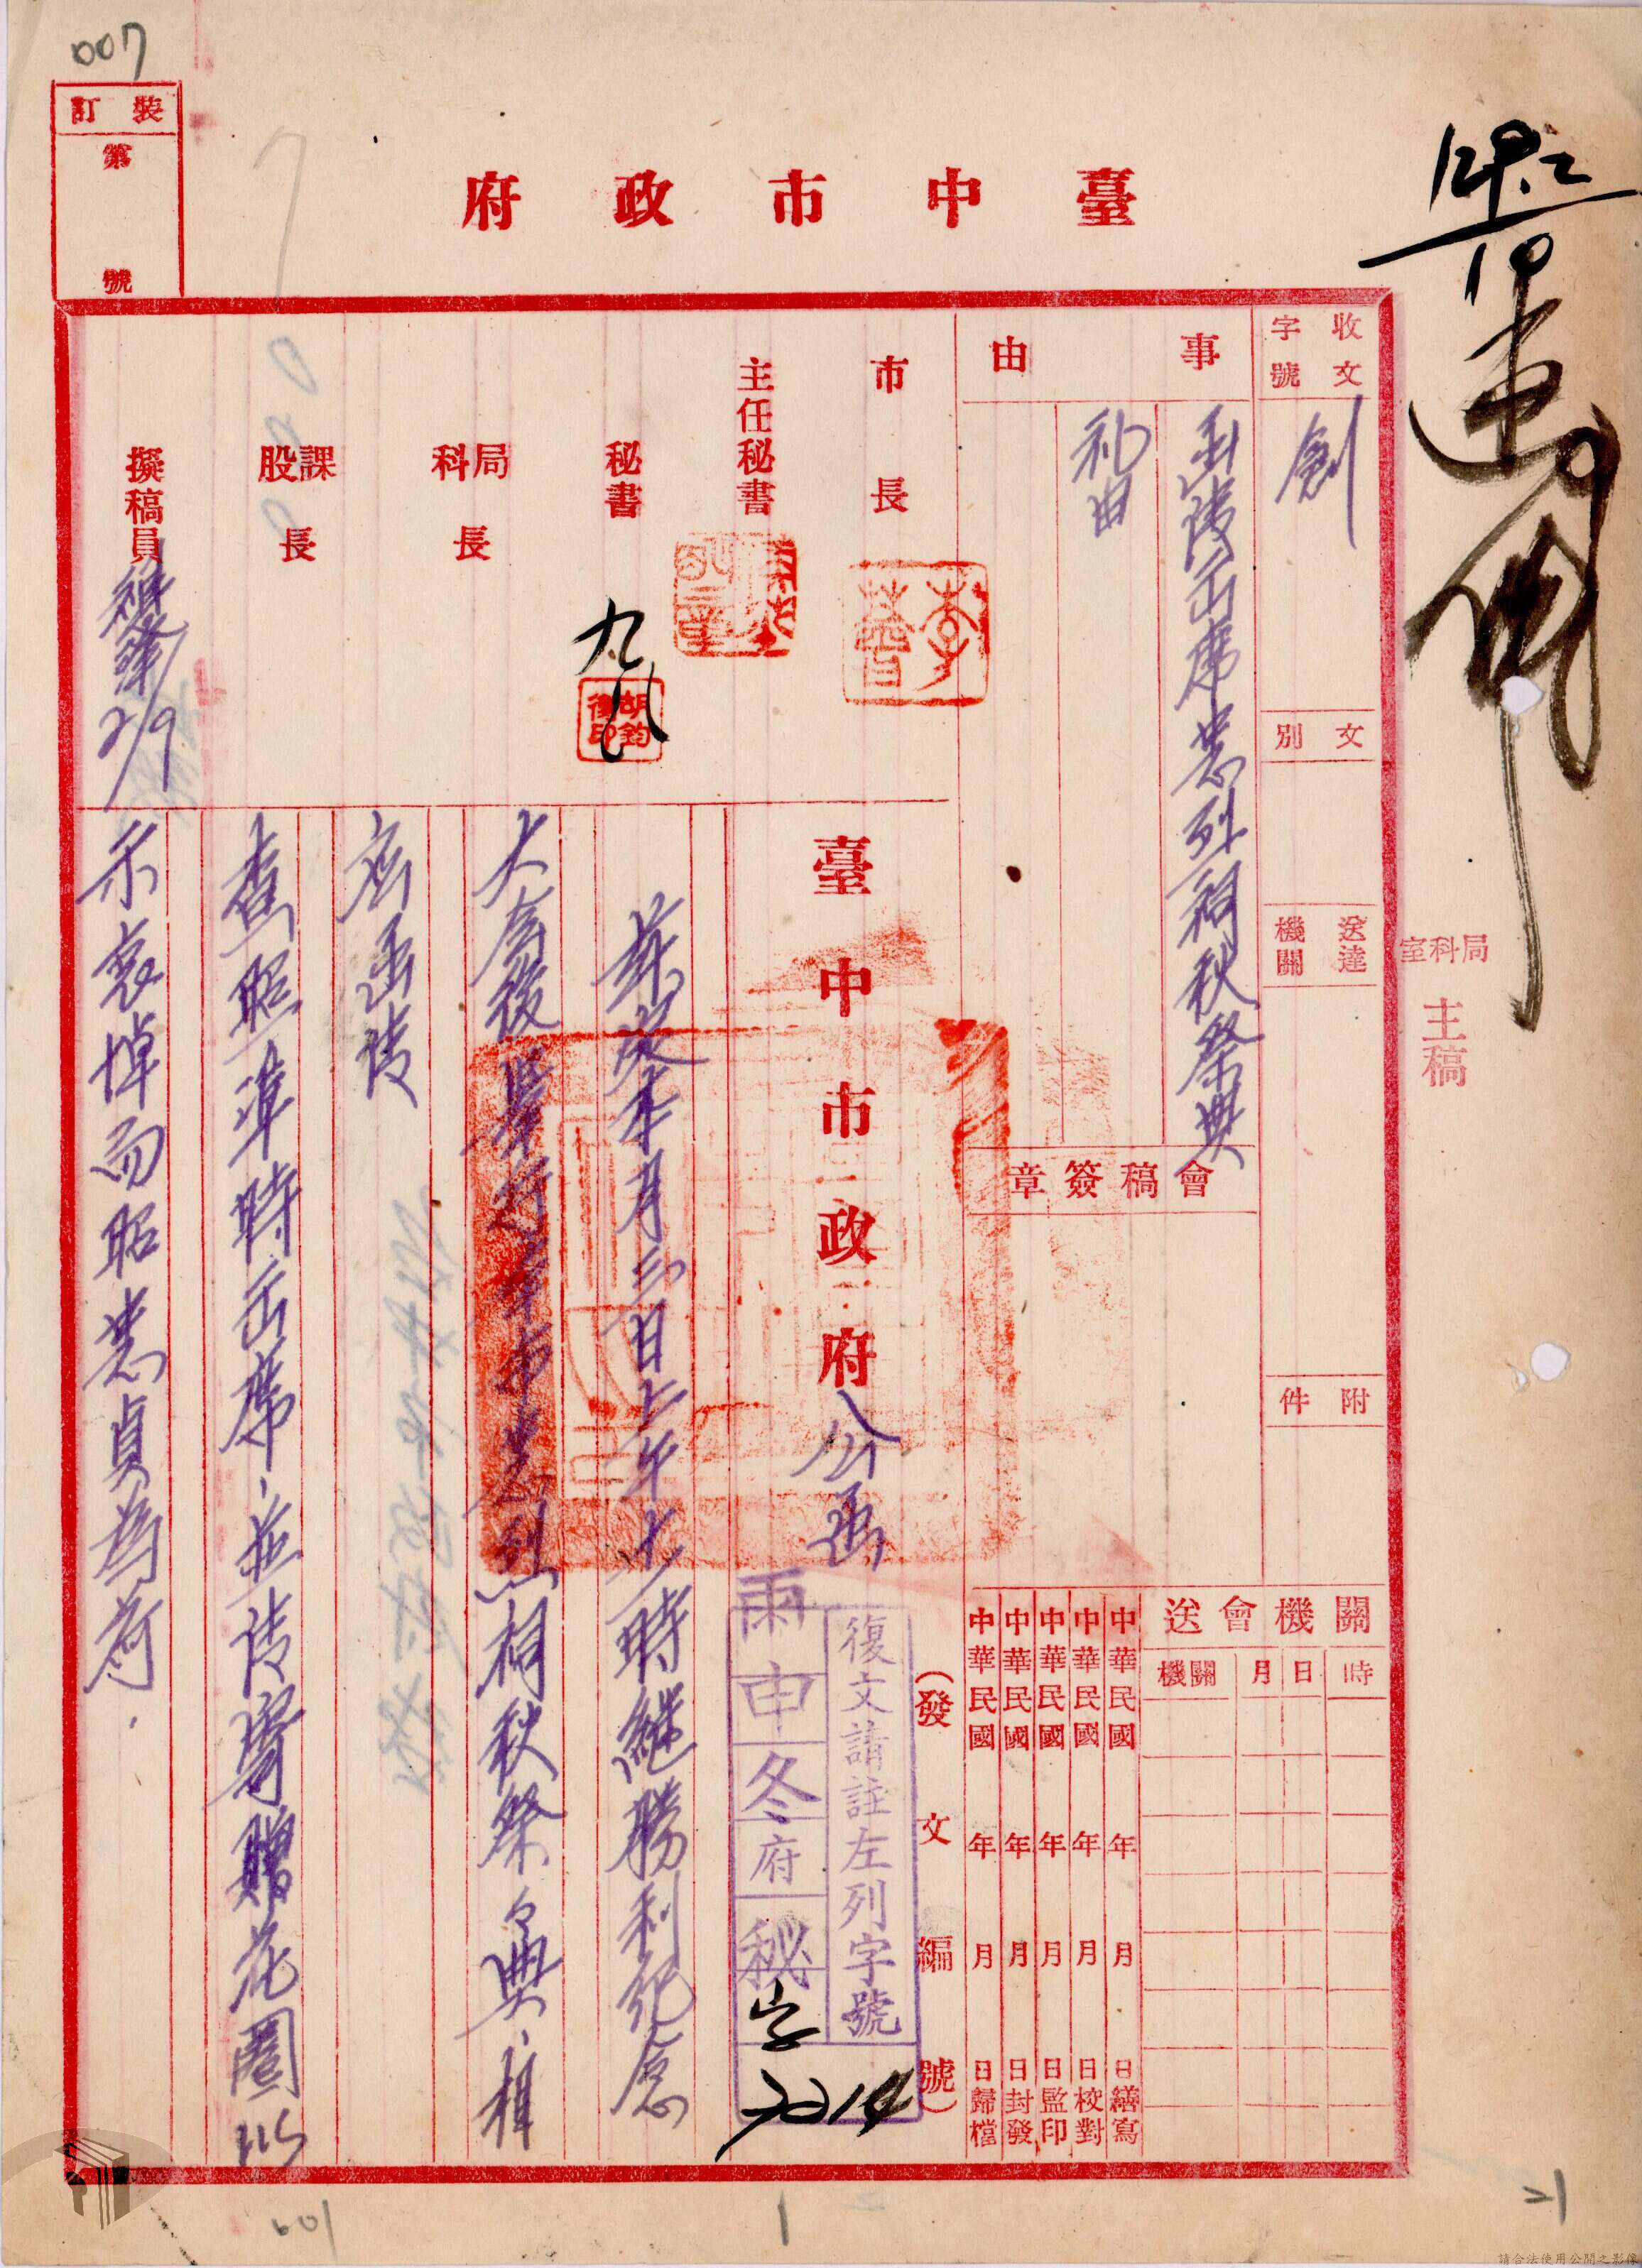 007
裝訂
第
號
臺中市政府
收文
字號
創
文別
送達
機關
附件
事由
函請出席忠烈祠秋祭典
礼由
市長
主任秘書
秘書
九
胡鈞
局科長
課股長
擬稿員
2/9
會稿簽章
局科室
主稿
關機會送
時
日
月
機關
中華民國 年 月 日繕寫
中華民國 年 月 日校對
中華民國 年 月 日監印
中華民國 年 月 日封發
中華民國 年 月 日歸檔
(發文編號)
臺中市政府公函
復文請註左列字號
申冬府秘字
7014
茲定本月三日上午十一時繼勝利紀念
大會後舉行本市忠烈祠秋祭典,相
應函請
查照準時出席,並請寄贈花圈以
示哀悼而昭忠貞為荷.
21
601
請合法使用公開之影像